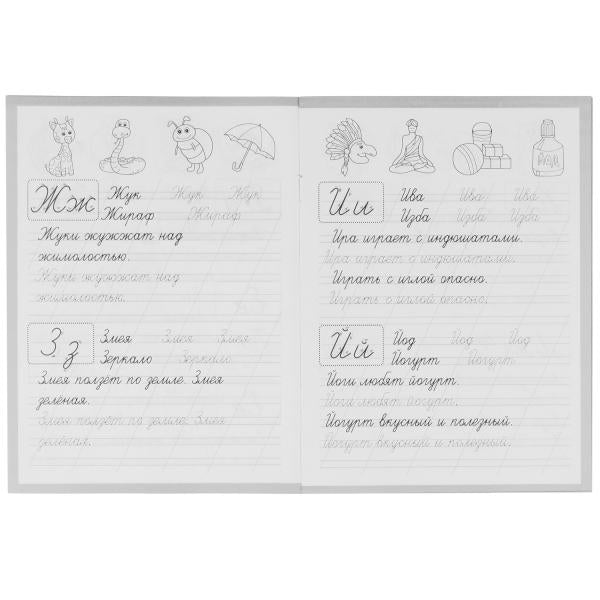 Жж Жук Жук Жук
Жираф Жираф
Жуки жужжат над
жимолостью.
Жуки жужжат над
жимолостью.
Зз Змея Змея Змея
Зеркало Зеркало
Змея ползёт по земле. Змея
зелёная.
Змея ползёт по земле. Змея
зелёная.
ЙОД
Ии Ива Ива Ива
Изба Изба Изба
Ира играет с индюшатами.
Ира играет с индюшатами.
Играть с иглой опасно.
Играть с иглой опасно.
Йй Йод Йод Йод
Йогурт Йогурт
Йоги любят йогурт.
Йоги любят йогурт.
Йогурт вкусный и полезный.
Йогурт вкусный и полезный.